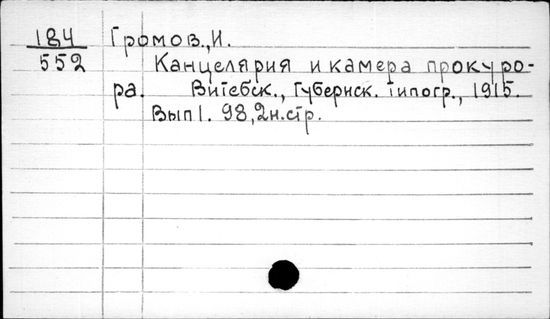 184 Громов.,И.
552 Канцелярия и камера прокуро-
ра. Витебск., Губернск. типогр., 1915.
Вып1. 98,2н.стр.